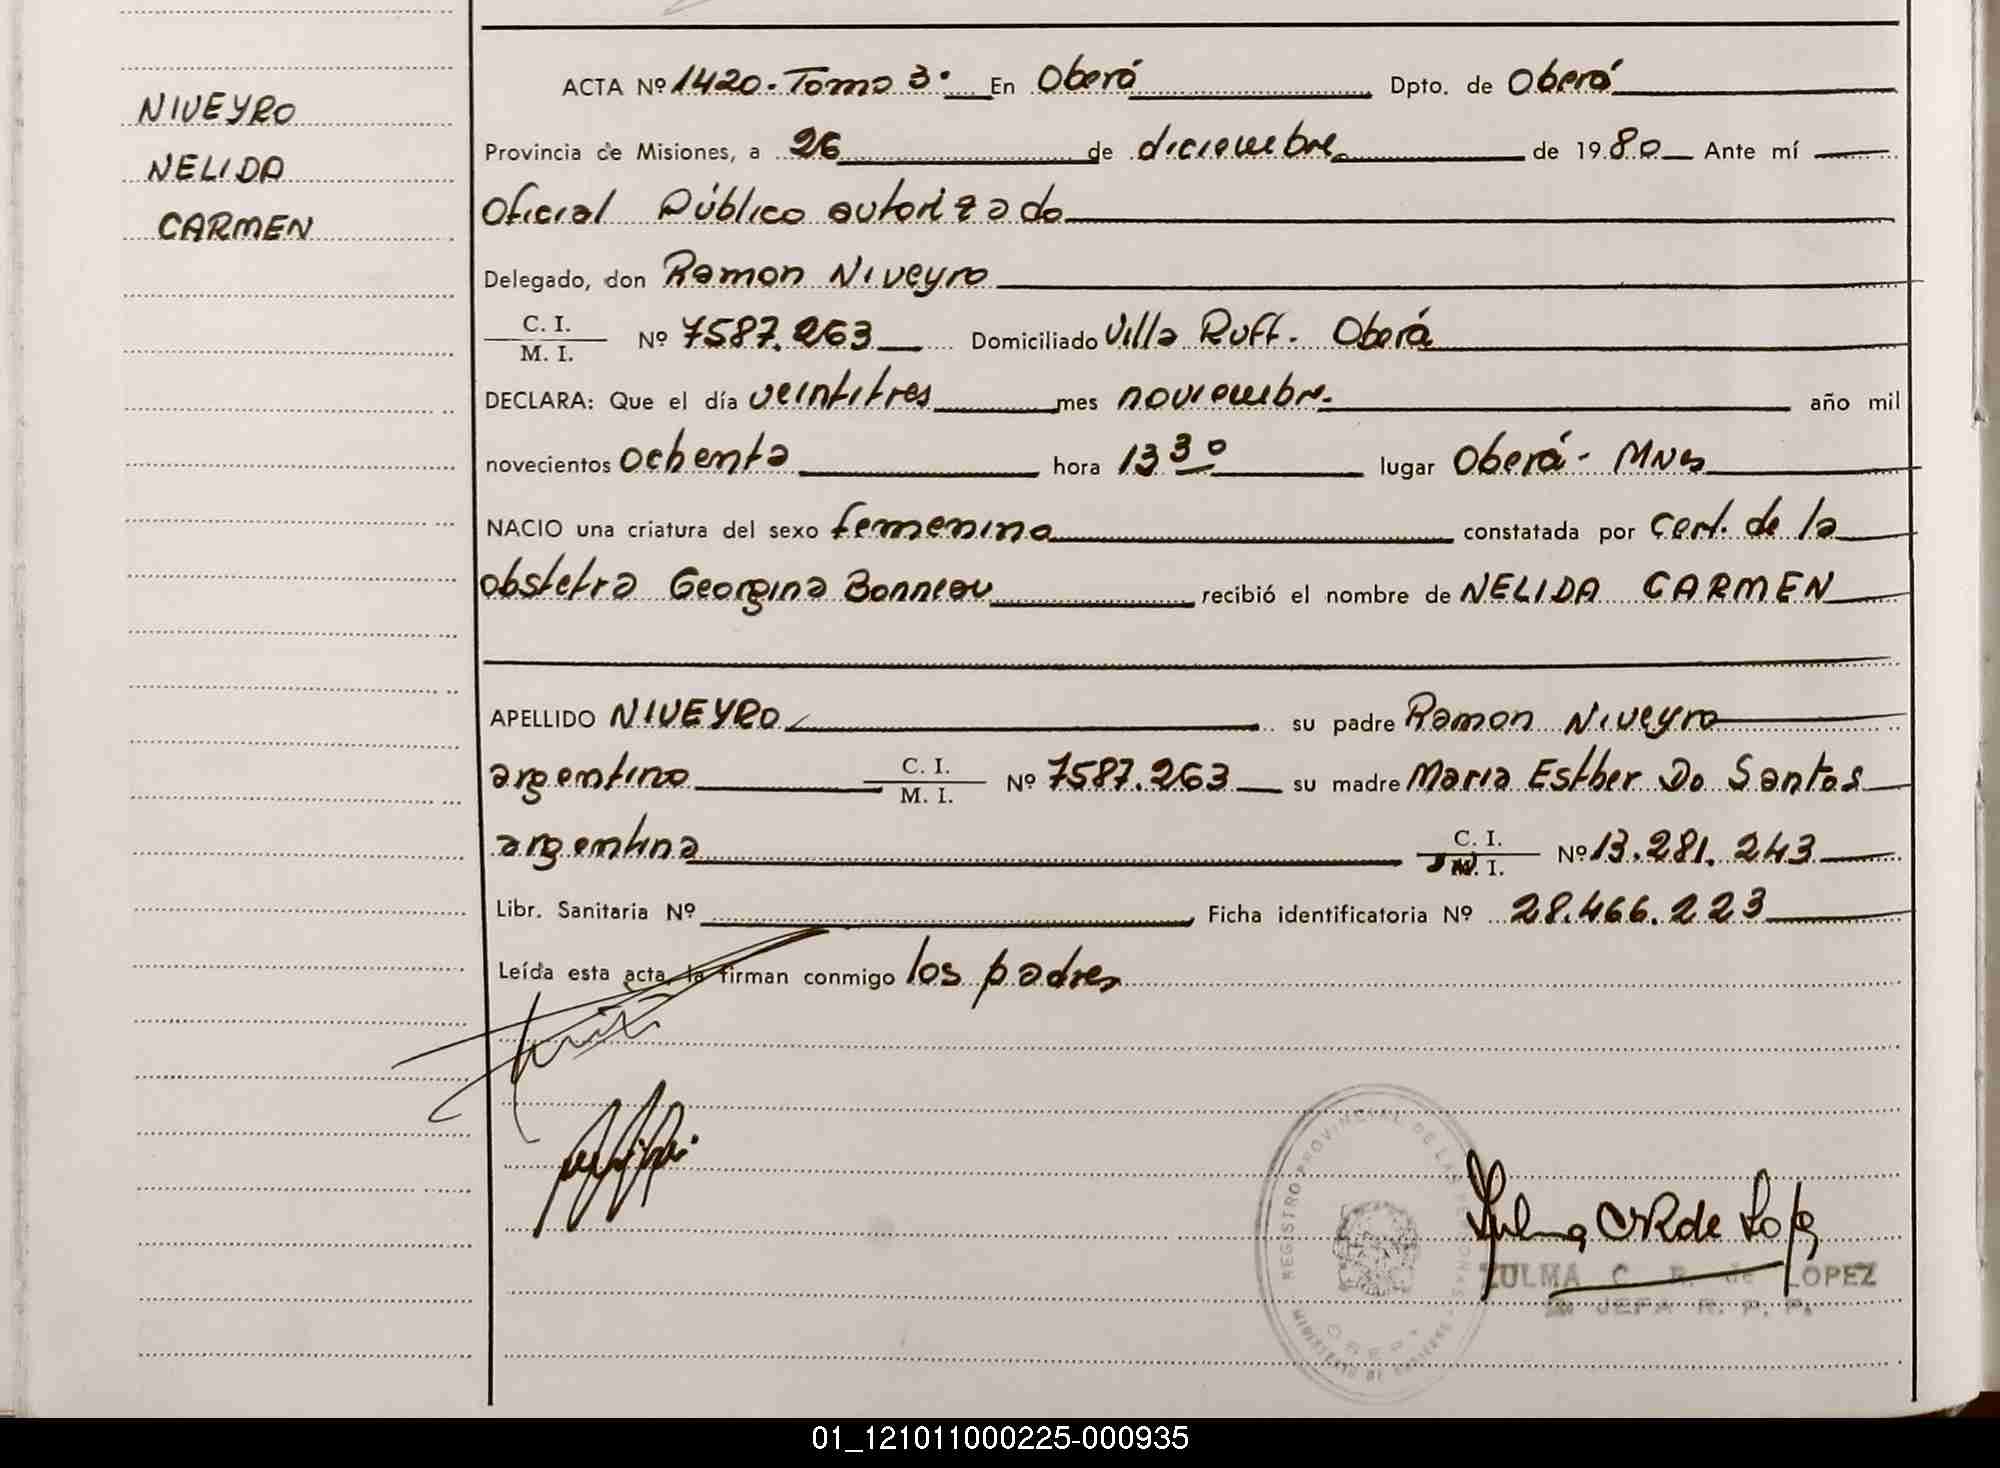 NIVEYRO
NELIDA
CARMEN
ACTA Nº 1420 - Tomo 3º En Oberá Dpto. de Oberá
Provincia de Misiones, a 26 de diciembre de 1980 Ante mí
Oficial Público autorizado
Delegado, don Ramon Niveyro
C. I. / M. I. Nº 7587.263 Domiciliado Villa Ruff. Oberá
DECLARA: Que el día veintitres mes noviembre año mil
novecientos ochenta hora 13 30 lugar Oberá - Mnes
NACIO una criatura del sexo femenino constatada por cert. de la
obstetra Georgina Bonneau recibió el nombre de NELIDA CARMEN
APELLIDO NIVEYRO su padre Ramon Niveyro
argentino C. I. / M. I. Nº 7587.263 su madre Maria Esther Do Santos
argentina C. I. / M. I. Nº 13.281.243
Libr. Sanitaria Nº Ficha identificatoria Nº 28.466.223
Leída esta acta, la firman conmigo los padres
REGISTRO PROVINCIAL DE LAS PERSONAS
Zulma C R de Lopez
ZULMA C. R. de LOPEZ
JEFA R. P. P.
01_121011000225-000935